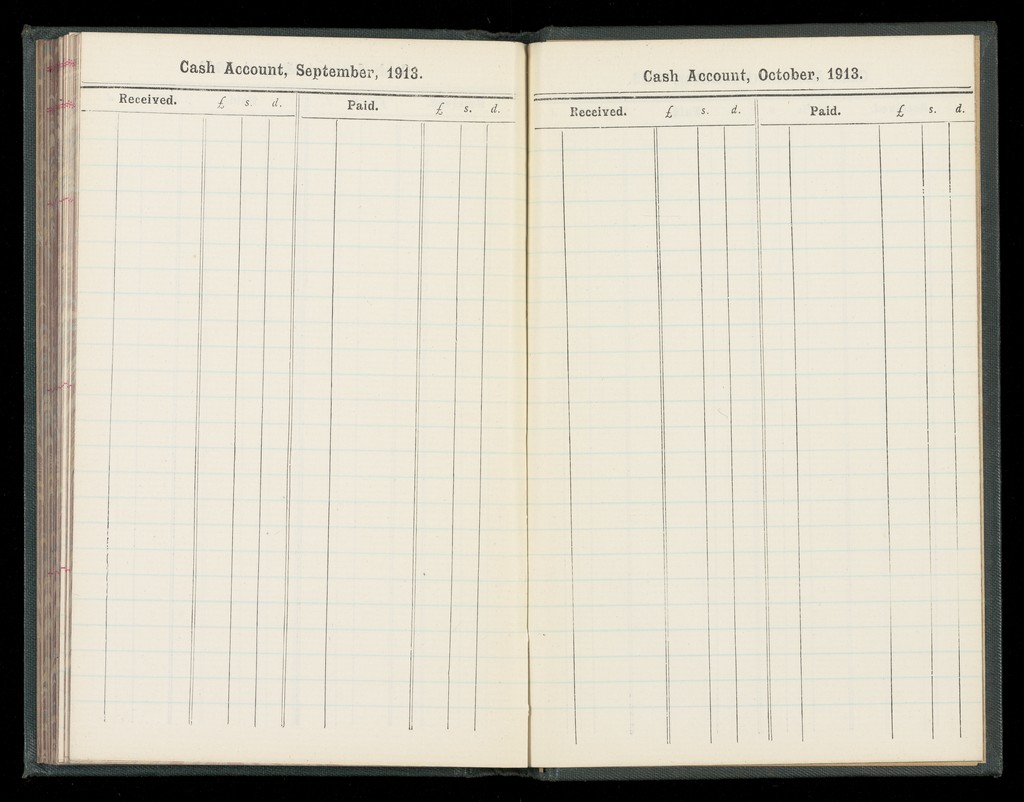 Cash Account, September, 1913.
Received. £ s. d. Paid. £ s. d.
Cash Account, October, 1913.
Received. £ s. d. Paid. £ s. d.